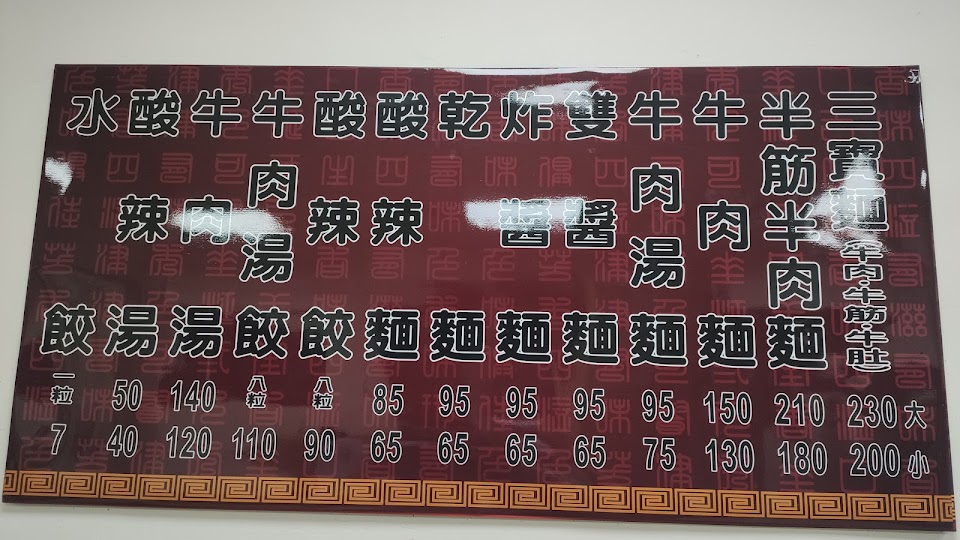 三寶麵(牛肉·牛筋·牛肚) 230大 200小
半筋半肉麵 210 180
牛肉麵 150 130
牛肉湯麵 95 75
雙醬麵 95 65
炸醬麵 95 65
乾麵 95 65
酸辣麵 85 65
酸辣餃 八粒 90
牛肉湯餃 八粒 110
牛肉湯 140 120
酸辣湯 50 40
水餃 一粒 7